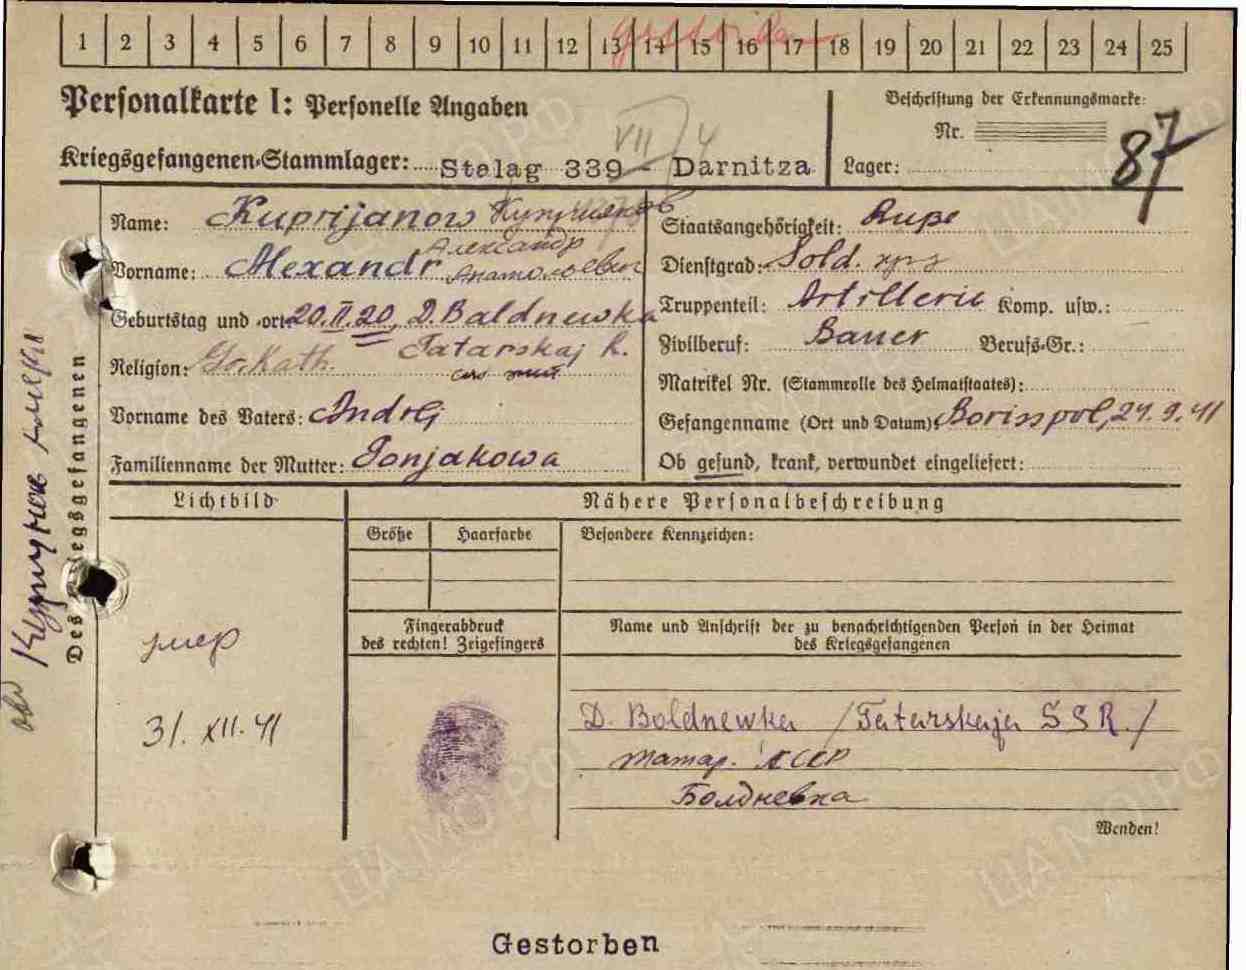 1 2 3 4 5 6 7 8 9 10 11 12 13 14 15 16 17 18 19 20 21 22 23 24 25
gestorben
Personalkarte I: Personelle Angaben
Beschriftung der Erkennungsmarke:
Nr.
VII / 4
87
Kriegsgefangenen-Stammlager: Stalag 339 - Darnitza
Lager:
Des Kriegsgefangenen
Name: Kuprijanow Куприянов
Staatsangehörigkeit: Ruße
Александр
Vorname: Alexandr Анатольевич
Dienstgrad: Sold.
Geburtstag und -ort: 20.II.20, D. Baldnewka
Truppenteil: Artillerie Komp. usw.:
Tatarskaj R.
Religion: Gr. Kath.
Zivilberuf: Bauer Berufs-Gr.:
Matrikel Nr. (Stammrolle des Heimatstaates):
Vorname des Vaters: Andrej
Gefangenname (Ort und Datum): Borisspol, 24.9.41
Familienname der Mutter: Tonjakowa
Ob gesund, krank, verwundet eingeliefert:
Lichtbild
Nähere Personalbeschreibung
Größe Haarfarbe
Besondere Kennzeichen:
Fingerabdruck
des rechten! Zeigefingers
Name und Anschrift der zu benachrichtigenden Person in der Heimat
des Kriegsgefangenen
умер
31. XII. 41
D. Boldnewka /Tatarskaja SSR./
татар. АССР
Болдневка
Wenden!
Gestorben
ЦА МО РФ